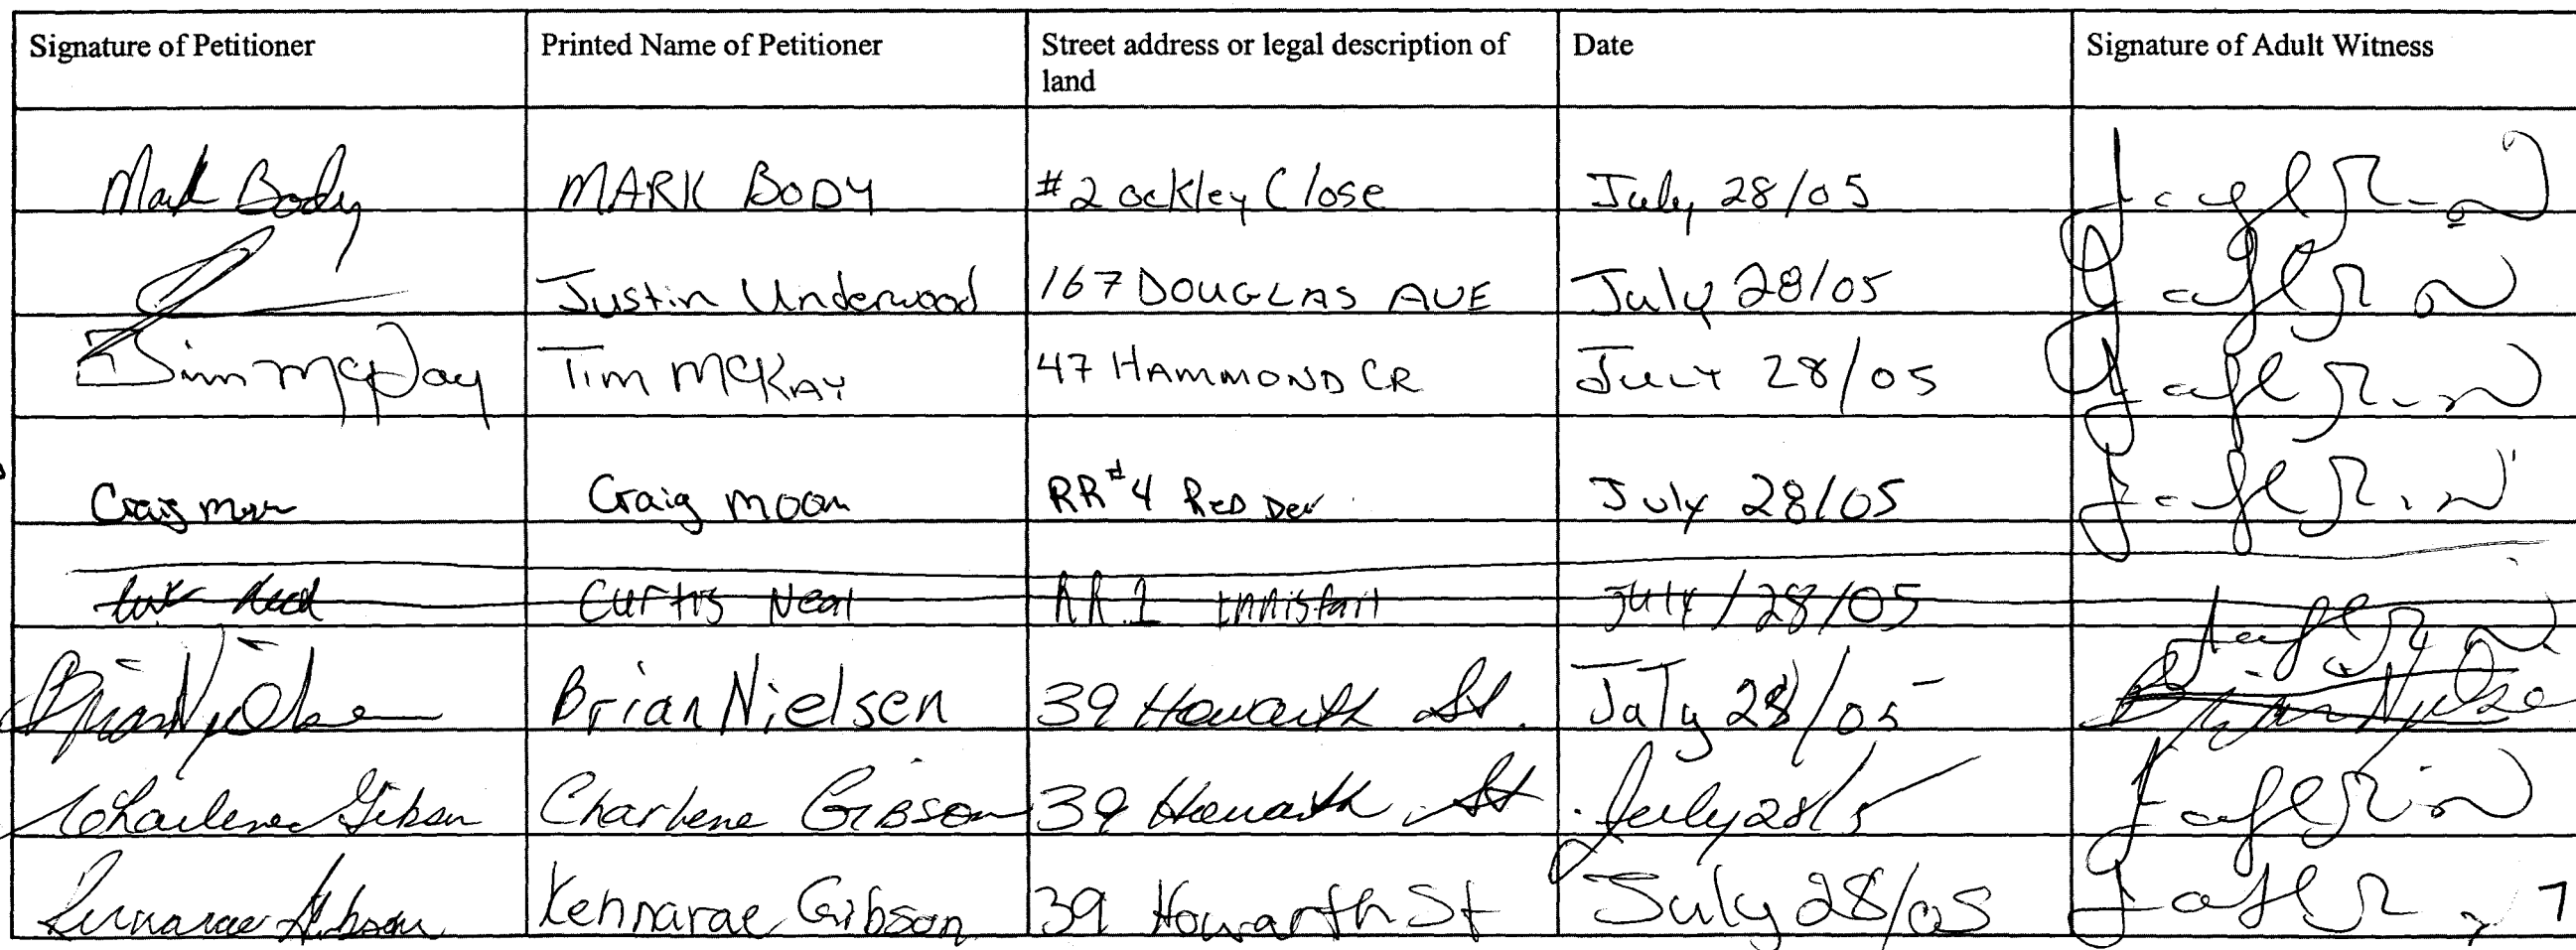 Signature of Petitioner Printed Name of Petitioner Street address or legal description of land Date Signature of Adult Witness
Mark Body MARK BODY #2 ockley Close July 28/05
Justin Underwood 167 DOUGLAS AVE July 28/05
Tim McKay Tim McKAY 47 HAMMOND CR JULY 28/05
Craig Moon Craig moon RR#4 RED Deer July 28/05
Curtis Neal RR.1 Innisfail July/28/05
Brian Nielsen Brian Nielsen 39 Howarth St. July 28/05 Brian Nielsen
Charlene Gibson Charlene GIBSON 39 Howarth St. July 28/5
Kennarae Gibson Kennarae Gibson 39 Howarth St July 28/05
7